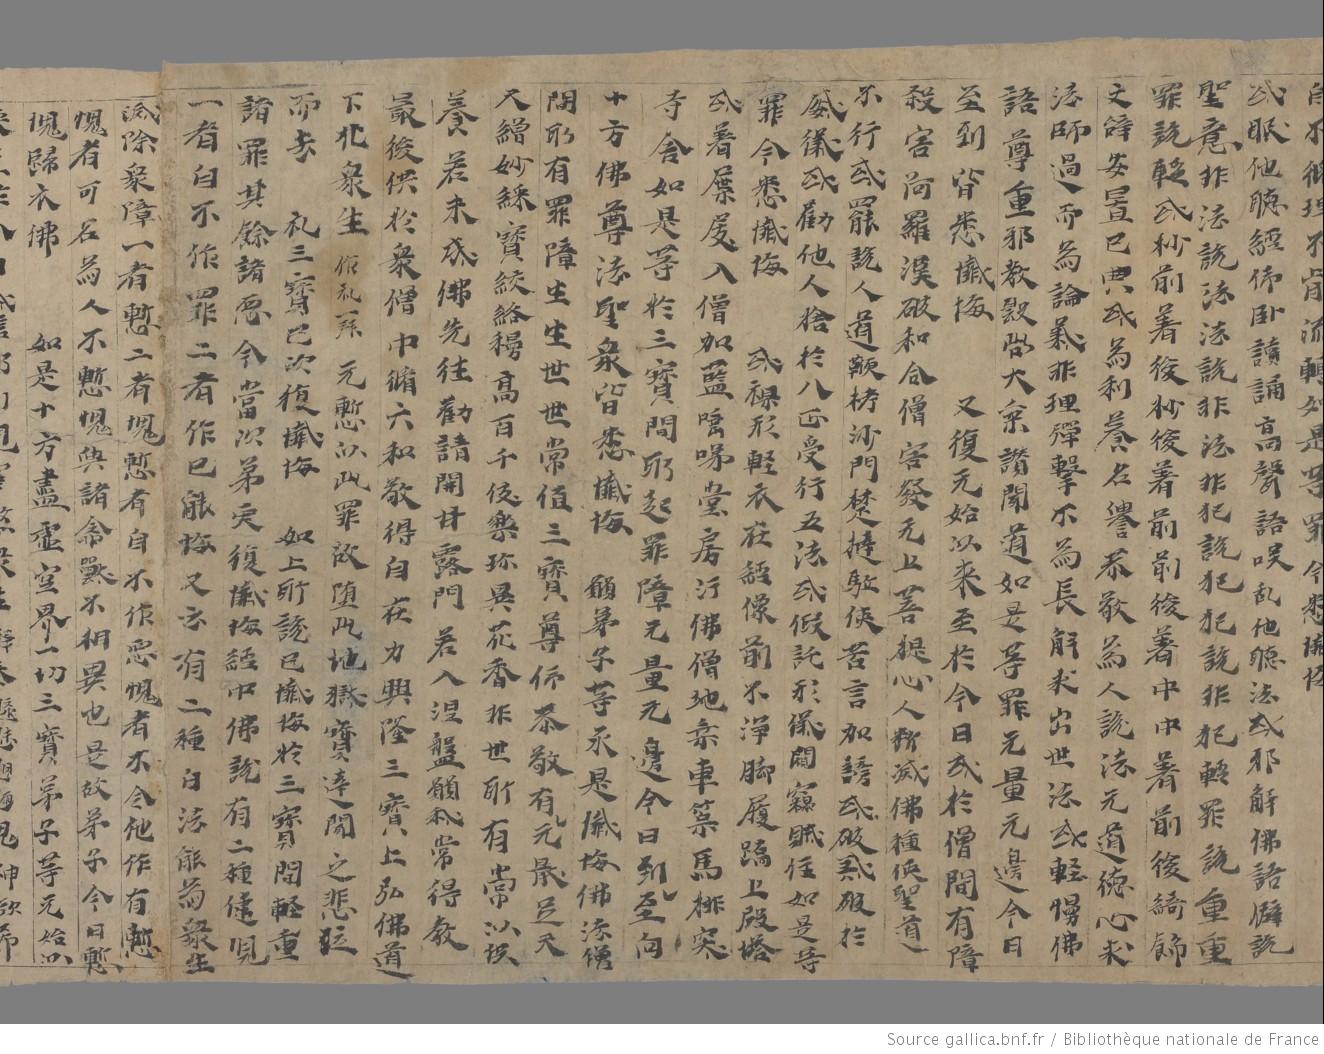 自不循理不肯流轉如是等罪今悉懺悔
或眠他聽經仰卧讀誦高聲語咲乱他聽法或邪解佛語僻說
聖意非法說法法說非法非犯說犯犯說非犯輕罪說重重
罪說輕或抄前著後抄後著前前後著中中著前後綺飾
文辞安置已典或為利養名譽恭敬為人說法无道德心求
法師過而為論義非理彈擊不為長解求出世法或輕慢佛
語尊重邪教毀呰大乘讃聞道如是等罪无量无邊今日
至到皆悉懺悔 又復无始以来至於今日或於僧間有障
殺害阿羅漢破和合僧害發无上菩提心人斷滅佛種使聖道
不行或罷說人道鞭栲沙門楚撻駈使苦言加謗或破或破於
威儀或勸他人捨於八正受行五法或假託形儀闚竊賊住如是等
罪今悉懺悔 或裸形輕衣在經像前不淨脚履蹋上殿塔
或著屣屐入僧加藍唾唾堂房汙佛僧地乘車策馬排突
寺舍如是等於三寶間所起罪障无量无邊今日到至向
十方佛尊法聖衆皆悉懺悔 願弟子等承是懺悔佛法僧
間所有罪障生生世世常值三寶尊仰恭敬有无最足天
天繒妙綵寶絞絡殤高百千伎樂珎異花香非世所有常以供
養若未成佛先往勸請開甘露門若入涅盤願我常得教
最後供於衆僧中循六和敬得自在力興隆三寶上弘佛道
下化衆生 作礼拜 元慙以此罪故堕此地獄寶達聞之悲泣
而去 礼三寶已次復懺悔 如上所說已懺悔於三寶間輕重
諸罪其餘諸惡今當次弟更復懺悔經中佛說有二種健児
一者自不作罪二者作已能悔又云有二種白法能為衆生
滅除衆障一者慙二者愧慙者自不作惡愧者不令他作有慙
愧者可名為人不慙愧與諸禽獸不相異也是故弟子今日慙
愧歸衣佛 如是十方盡虚空界一切三寶弟子等无始以